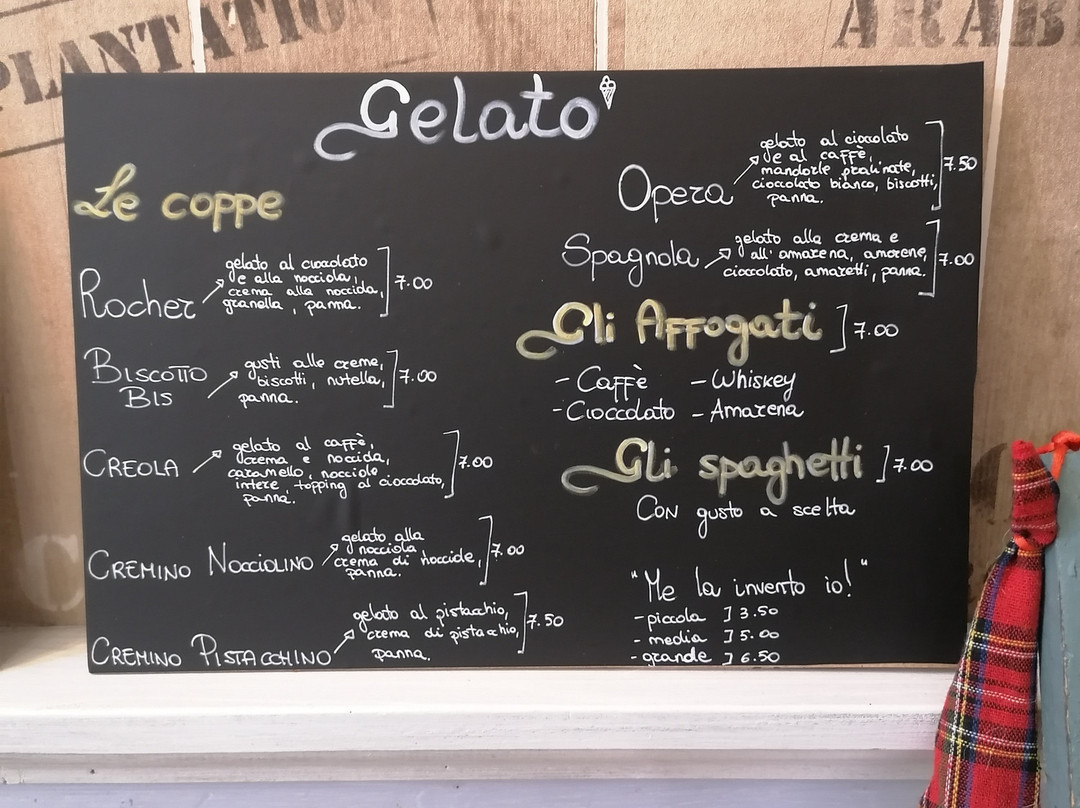 PLANTATION
ARAB
Gelato
Le coppe
Rocher
gelato al cioccolato
e alla nocciola,
crema alla nocciola,
granella, panna.
7.00
BISCOTTO
BIS
gusti alle creme,
biscotti, nutella,
panna.
7.00
CREOLA
gelato al caffè,
crema e nocciola,
caramello, nocciole
intere topping al cioccolato,
panna.
7.00
CREMINO NOCCIOLINO
gelato alla
nocciola
crema di nocciole,
panna.
7.00
CREMINO PISTACCHINO
gelato al pistacchio,
crema di pistacchio,
panna.
7.50
Opera
gelato al cioccolato
e al caffè,
mandorle pralinate,
cioccolato bianco, biscotti,
panna.
7.50
Spagnola
gelato alla crema e
all'amarena, amarene,
cioccolato, amaretti, panna.
7.00
Gli Affogati ] 7.00
- Caffè - Whiskey
- Cioccolato - Amarena
Gli spaghetti ] 7.00
Con gusto a scelta
"Me la invento io!"
- piccola ] 3.50
- media ] 5.00
- grande ] 6.50